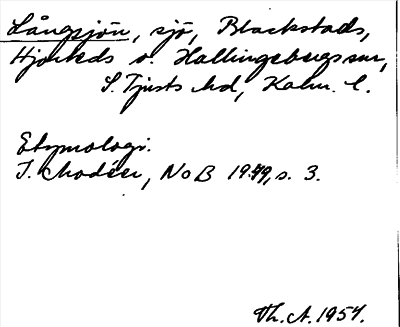 Långsjön, sjö, Blackstads,
Hjorteds o. Hallingebergs snr,
S. Tjusts hd, Kalm. l.
Etymologi.
I. Modéer, NoB 1949, s. 3.
Th. A. 1954.